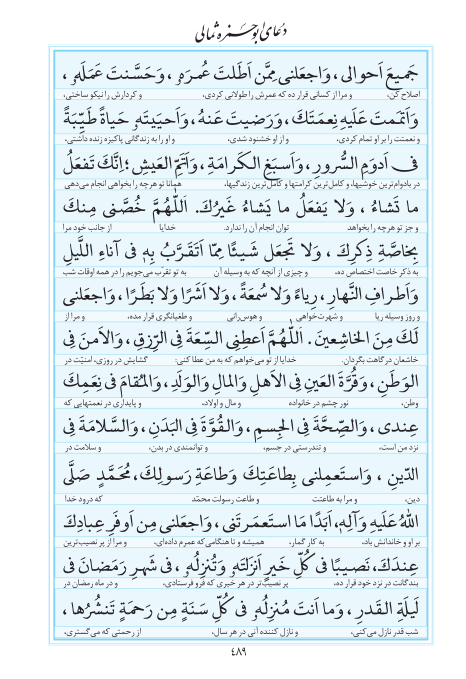 دعای ابوحمزه ثمالی
جَمیعَ اَحوالی، وَاجعَلنی مِمَّن اَطَلتَ عُمرَهُ، وَحَسَّنتَ عَمَلَهُ،
اصلاح کن، و مرا از کسانی قرار ده که عمرش را طولانی کردی، و کردارش را نیکو ساختی،
وَاَتمَمتَ عَلَیهِ نِعمَتَكَ، وَرَضیتَ عَنهُ، وَاَحیَیتَهُ حَیاةً طَیِّبَةً
و نعمتت را بر او تمام کردی، و از او خشنود شدی، و او را به زندگانی پاکیزه زنده داشتی،
فی اَدوَمِ السُّرورِ، وَاَسبَغِ الکَرامَةِ، وَاَتَمِّ العَیشِ؛ اِنَّكَ تَفعَلُ
در بادوام‌ترین خوشیها، و کامل‌ترین کرامتها و کامل‌ترین زندگیها، همانا تو هرچه را بخواهی انجام می‌دهی
ما تَشاءُ، وَلا یَفعَلُ ما یَشاءُ غَیرُكَ. اَللّٰهُمَّ خُصَّنی مِنكَ
و جز تو هرچه را بخواهد توان انجام آن را ندارد. خدایا از جانب خود مرا
بِخاصَّةِ ذِکرِكَ، وَلا تَجعَل شَیئًا مِمّا اَتَقَرَّبُ بِهِ فی آناءِ اللَّیلِ
به ذکر خاصت اختصاص ده، و چیزی از آنچه که به وسیله آن به تو تقرّب می‌جویم را در همه اوقات شب
وَاَطرافِ النَّهارِ، رِیاءً وَلا سُمعَةً، وَلا اَشَرًا وَلا بَطَرًا، وَاجعَلنی
و روز وسیله ریا و شهرت‌خواهی و هوس‌رانی و طغیانگری قرار مده، و مرا از
لَكَ مِنَ الخاشِعینَ. اَللّٰهُمَّ اَعطِنِی السِّعَةَ فِی الرِّزقِ، وَالاَمنَ فِی
خاشعان درگاهت بگردان. خدایا از تو می‌خواهم که به من عطا کنی: گشایش در روزی، امنیّت در
الوَطَنِ، وَقُرَّةَ العَینِ فِی الاَهلِ وَالمالِ وَالوَلَدِ، وَالمُقامَ فی نِعَمِكَ
وطن، نور چشم در خانواده و مال و اولاد، و پایداری در نعمتهایی که
عِندی، وَالصِّحَّةَ فِی الجِسمِ، وَالقُوَّةَ فِی البَدَنِ، وَالسَّلامَةَ فِی
نزد من است، و تندرستی در جسم، و توانمندی در بدن، و سلامت در
الدّینِ، وَاستَعمِلنی بِطاعَتِكَ وَطاعَةِ رَسولِكَ، مُحَمَّدٍ صَلَّی
دین، و مرا به طاعتت و طاعت رسولت محمّد که درود خدا
اللّٰهُ عَلَیهِ وَآلِهِ، اَبَدًا مَا استَعمَرتَنی، وَاجعَلنی مِن اَوفَرِ عِبادِكَ
بر او و خاندانش باد، به کار گمار، همیشه و تا هنگامی که عمرم داده‌ای، و مرا از پر نصیب‌ترین
عِندَكَ، نَصیبًا فی کُلِّ خَیرٍ اَنزَلتَهُ وَتُنزِلُهُ، فی شَهرِ رَمَضانَ فی
بندگانت در نزد خود قرار ده، پر نصیب‌تر در هر خیری که فرو فرستادی، و در ماه رمضان در
لَیلَةِ القَدرِ، وَما اَنتَ مُنزِلُهُ فی کُلِّ سَنَةٍ مِن رَحمَةٍ تَنشُرُها،
شب قدر نازل می‌کنی، و نازل کننده آنی در هر سال، از رحمتی که می‌گستری،
٤٨٩